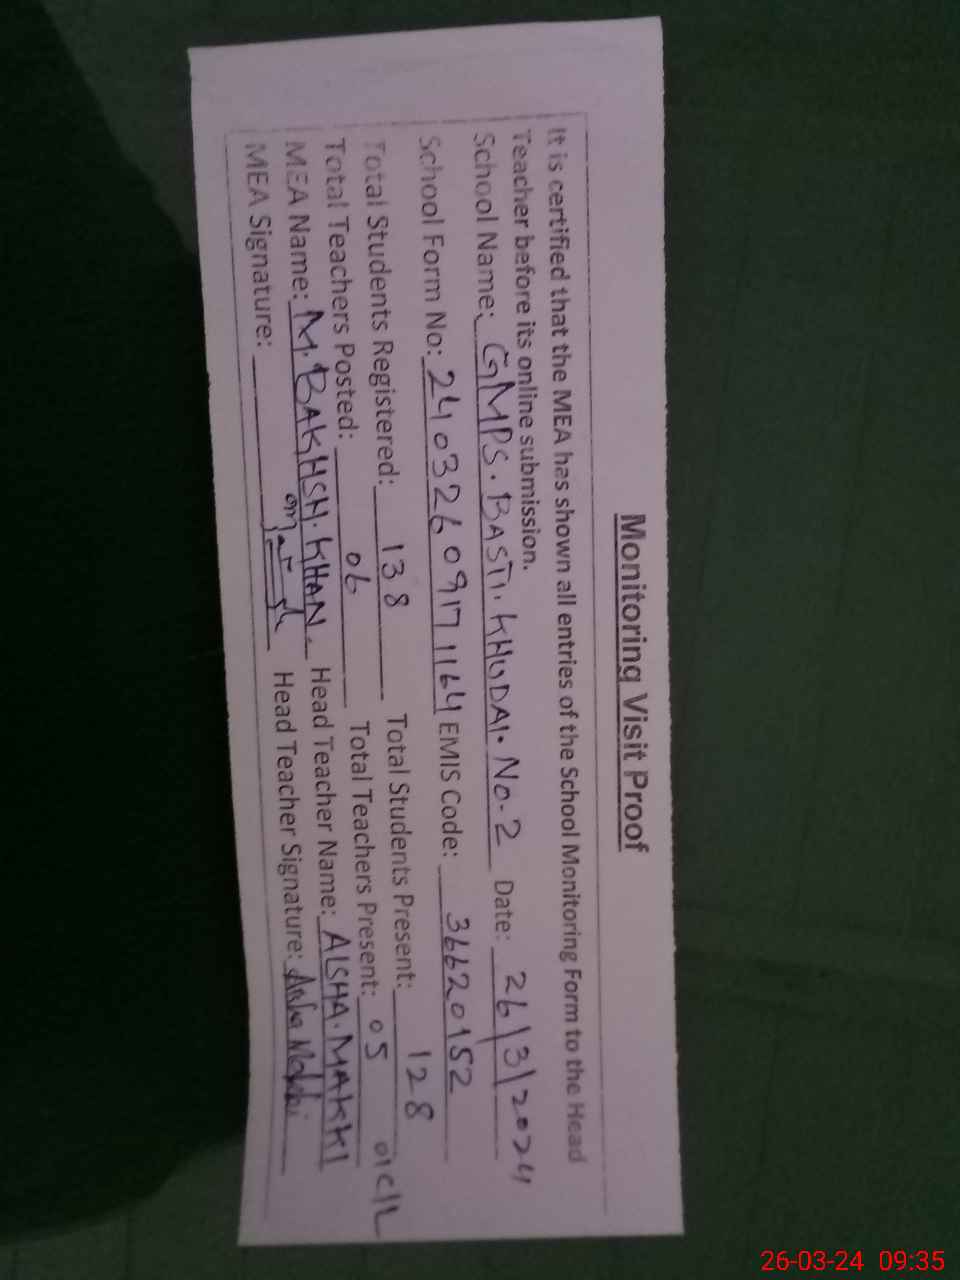 Monitoring Visit Proof
It is certified that the MEA has shown all entries of the School Monitoring Form to the Head
Teacher before its online submission.
School Name: GMPS. BASTI. KHUDAI. No-2 Date: 26/3/2024
School Form No: 24032609171164 EMIS Code: 36620152
Total Students Registered: 138 Total Students Present: 128
Total Teachers Posted: 06 Total Teachers Present: 05 01 C/L
MEA Name: M. BAKHSH. KHAN. Head Teacher Name: AISHA. MAKKI
MEA Signature: Head Teacher Signature:
26-03-24 09:35